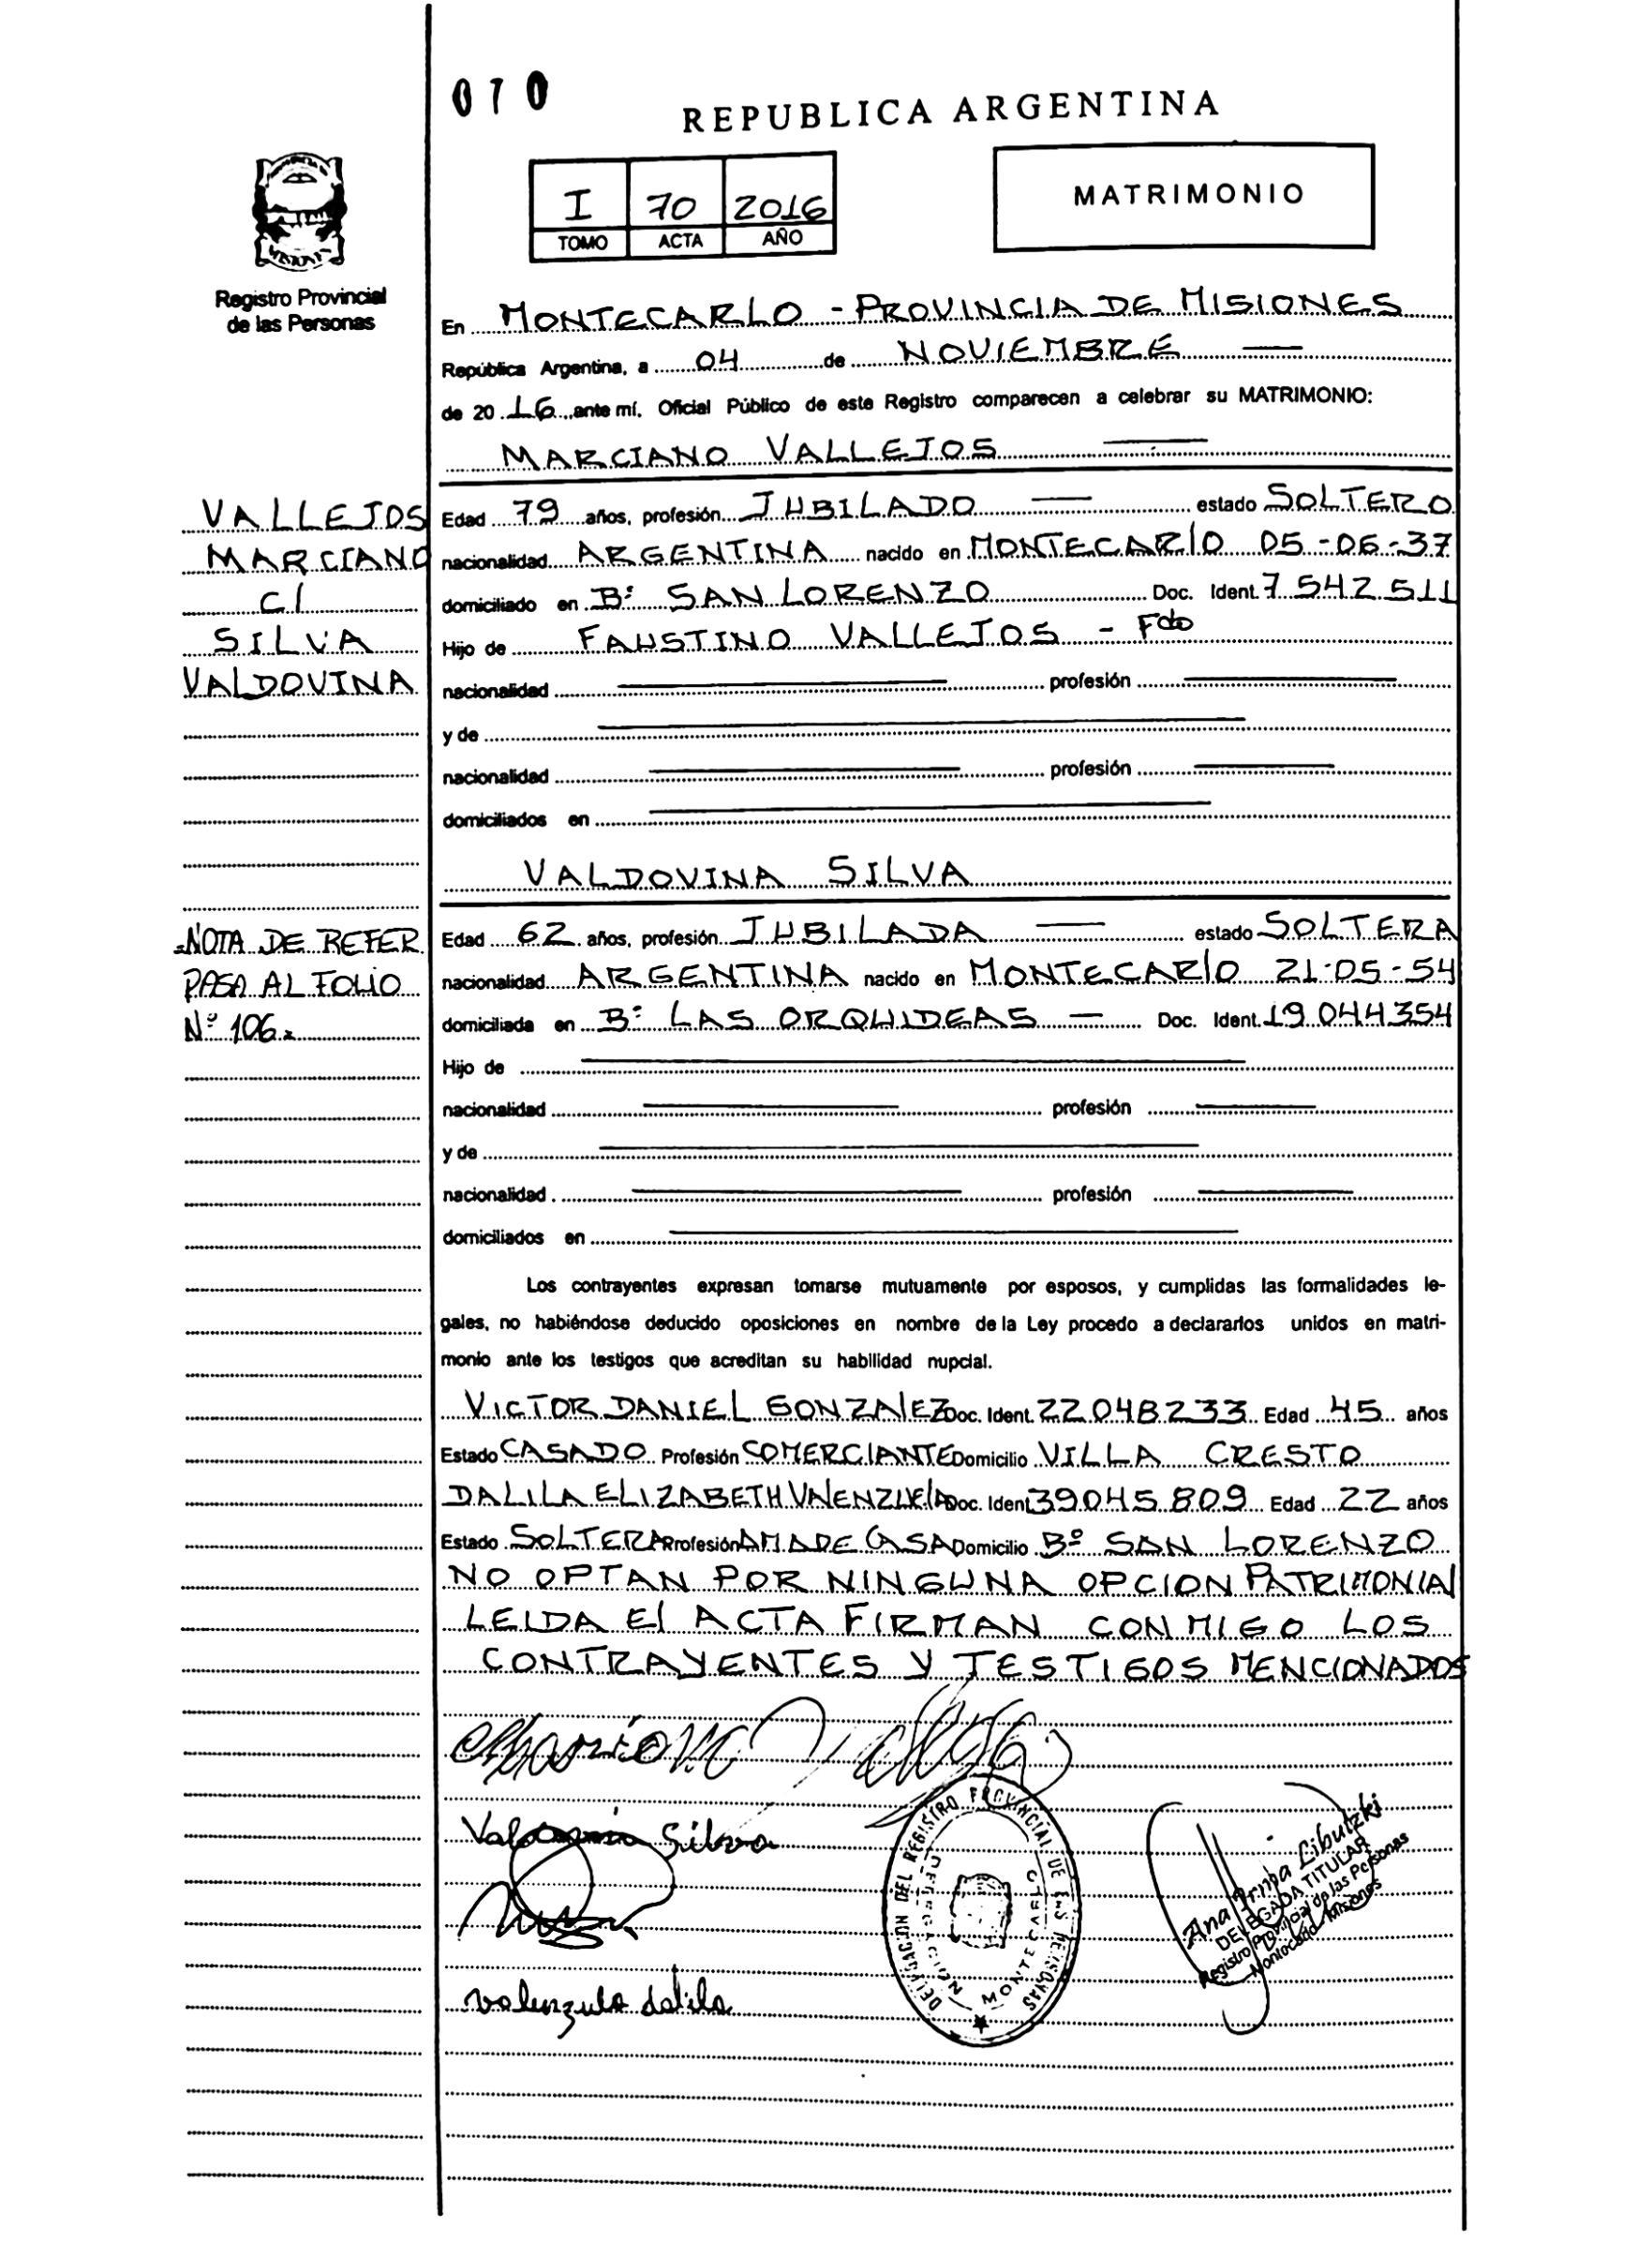 070
REPUBLICA ARGENTINA
I 70 2016
TOMO ACTA AÑO
MATRIMONIO
Registro Provincial
de las Personas
En MONTECARLO - PROVINCIA DE MISIONES
República Argentina, a 04 de NOVIEMBRE
de 2016 ante mí, Oficial Público de este Registro comparecen a celebrar su MATRIMONIO:
MARCIANO VALLEJOS
VALLEJOS
MARCIANO
C/
SILVA
VALDOVINA
Edad 79 años, profesión JUBILADO estado SOLTERO
nacionalidad ARGENTINA nacido en MONTECARLO 05-06-37
domiciliado en Bº SAN LORENZO Doc. Ident. 7.542.511
Hijo de FAUSTINO VALLEJOS - Fdo
nacionalidad profesión
y de
nacionalidad profesión
domiciliados en
VALDOVINA SILVA
NOTA DE REFER
PASA AL FOLIO
Nº 106
Edad 62 años, profesión JUBILADA estado SOLTERA
nacionalidad ARGENTINA nacido en MONTECARLO 21-05-54
domiciliada en Bº LAS ORQUIDEAS Doc. Ident. 19.044354
Hijo de
nacionalidad profesión
y de
nacionalidad profesión
domiciliados en
Los contrayentes expresan tomarse mutuamente por esposos, y cumplidas las formalidades le-
gales, no habiéndose deducido oposiciones en nombre de la Ley procedo a declararlos unidos en matri-
monio ante los testigos que acreditan su habilidad nupcial.
VICTOR DANIEL GONZALEZ Doc. Ident. 22.048233 Edad 45 años
Estado CASADO Profesión COMERCIANTE Domicilio VILLA CRESTO
DALILA ELIZABETH VALENZUELA Doc. Ident 39045.809 Edad 22 años
Estado SOLTERA Profesión AMA DE CASA Domicilio Bº SAN LORENZO
NO OPTAN POR NINGUNA OPCION PATRIMONIAL
LEIDA El ACTA FIRMAN CONMIGO LOS
CONTRAYENTES Y TESTIGOS MENCIONADOS
Valdovina Silva
valenzula dalila
DELEGACION DEL REGISTRO PROVINCIAL DE LAS PERSONAS
MONTECARLO
Ana Irma Libutzki
DELEGADA TITULAR
Registro Provincial de las Personas
Montecarlo Misiones